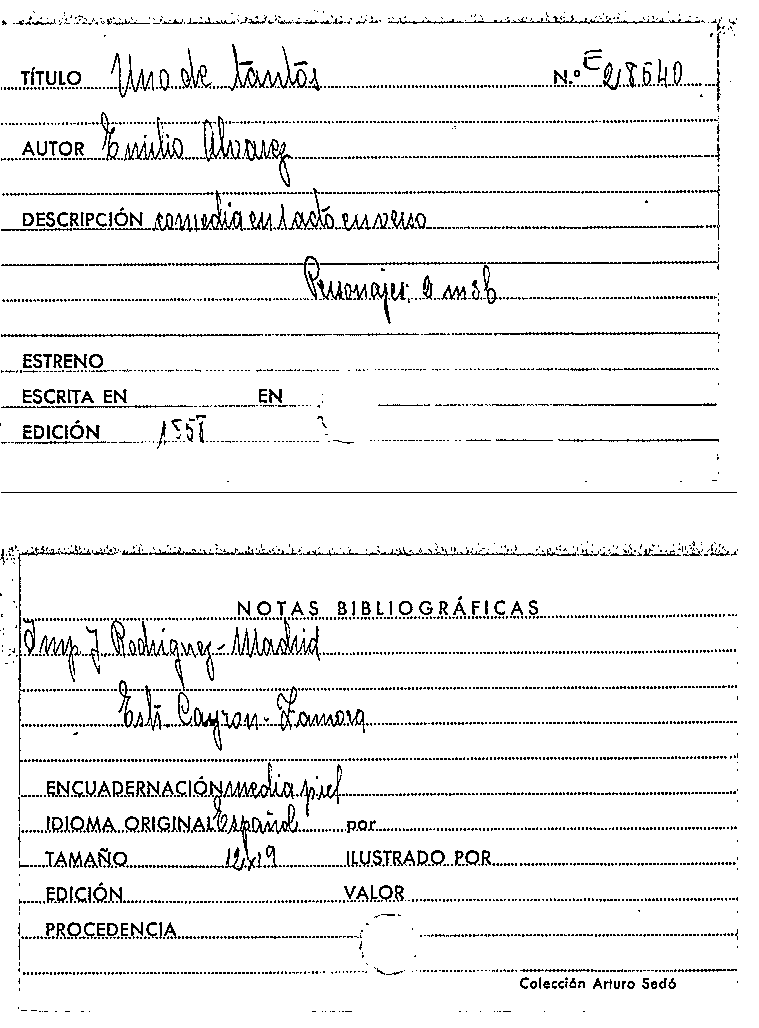 TÍTULO Uno de tantos N.º E 28640
AUTOR Emilio Alvarez
DESCRIPCIÓN comedia en 1 acto en verso
Personajes, 2 m 3 h
ESTRENO
ESCRITA EN EN
EDICIÓN
NOTAS BIBLIOGRÁFICAS
Imp J Rodriguez - Madrid
Estr Cayron - Zamora
ENCUADERNACIÓN media piel
IDIOMA ORIGINAL Español por
TAMAÑO 12x19 ILUSTRADO POR
EDICIÓN VALOR
PROCEDENCIA
Colección Arturo Sedó